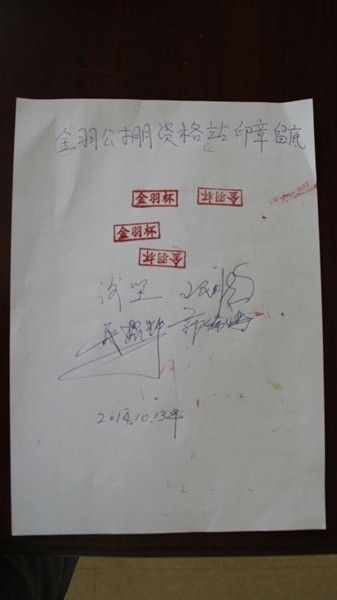 金羽公棚资格站印章留底
金羽杯 金羽杯
金羽杯
金羽杯
2014.10.13年